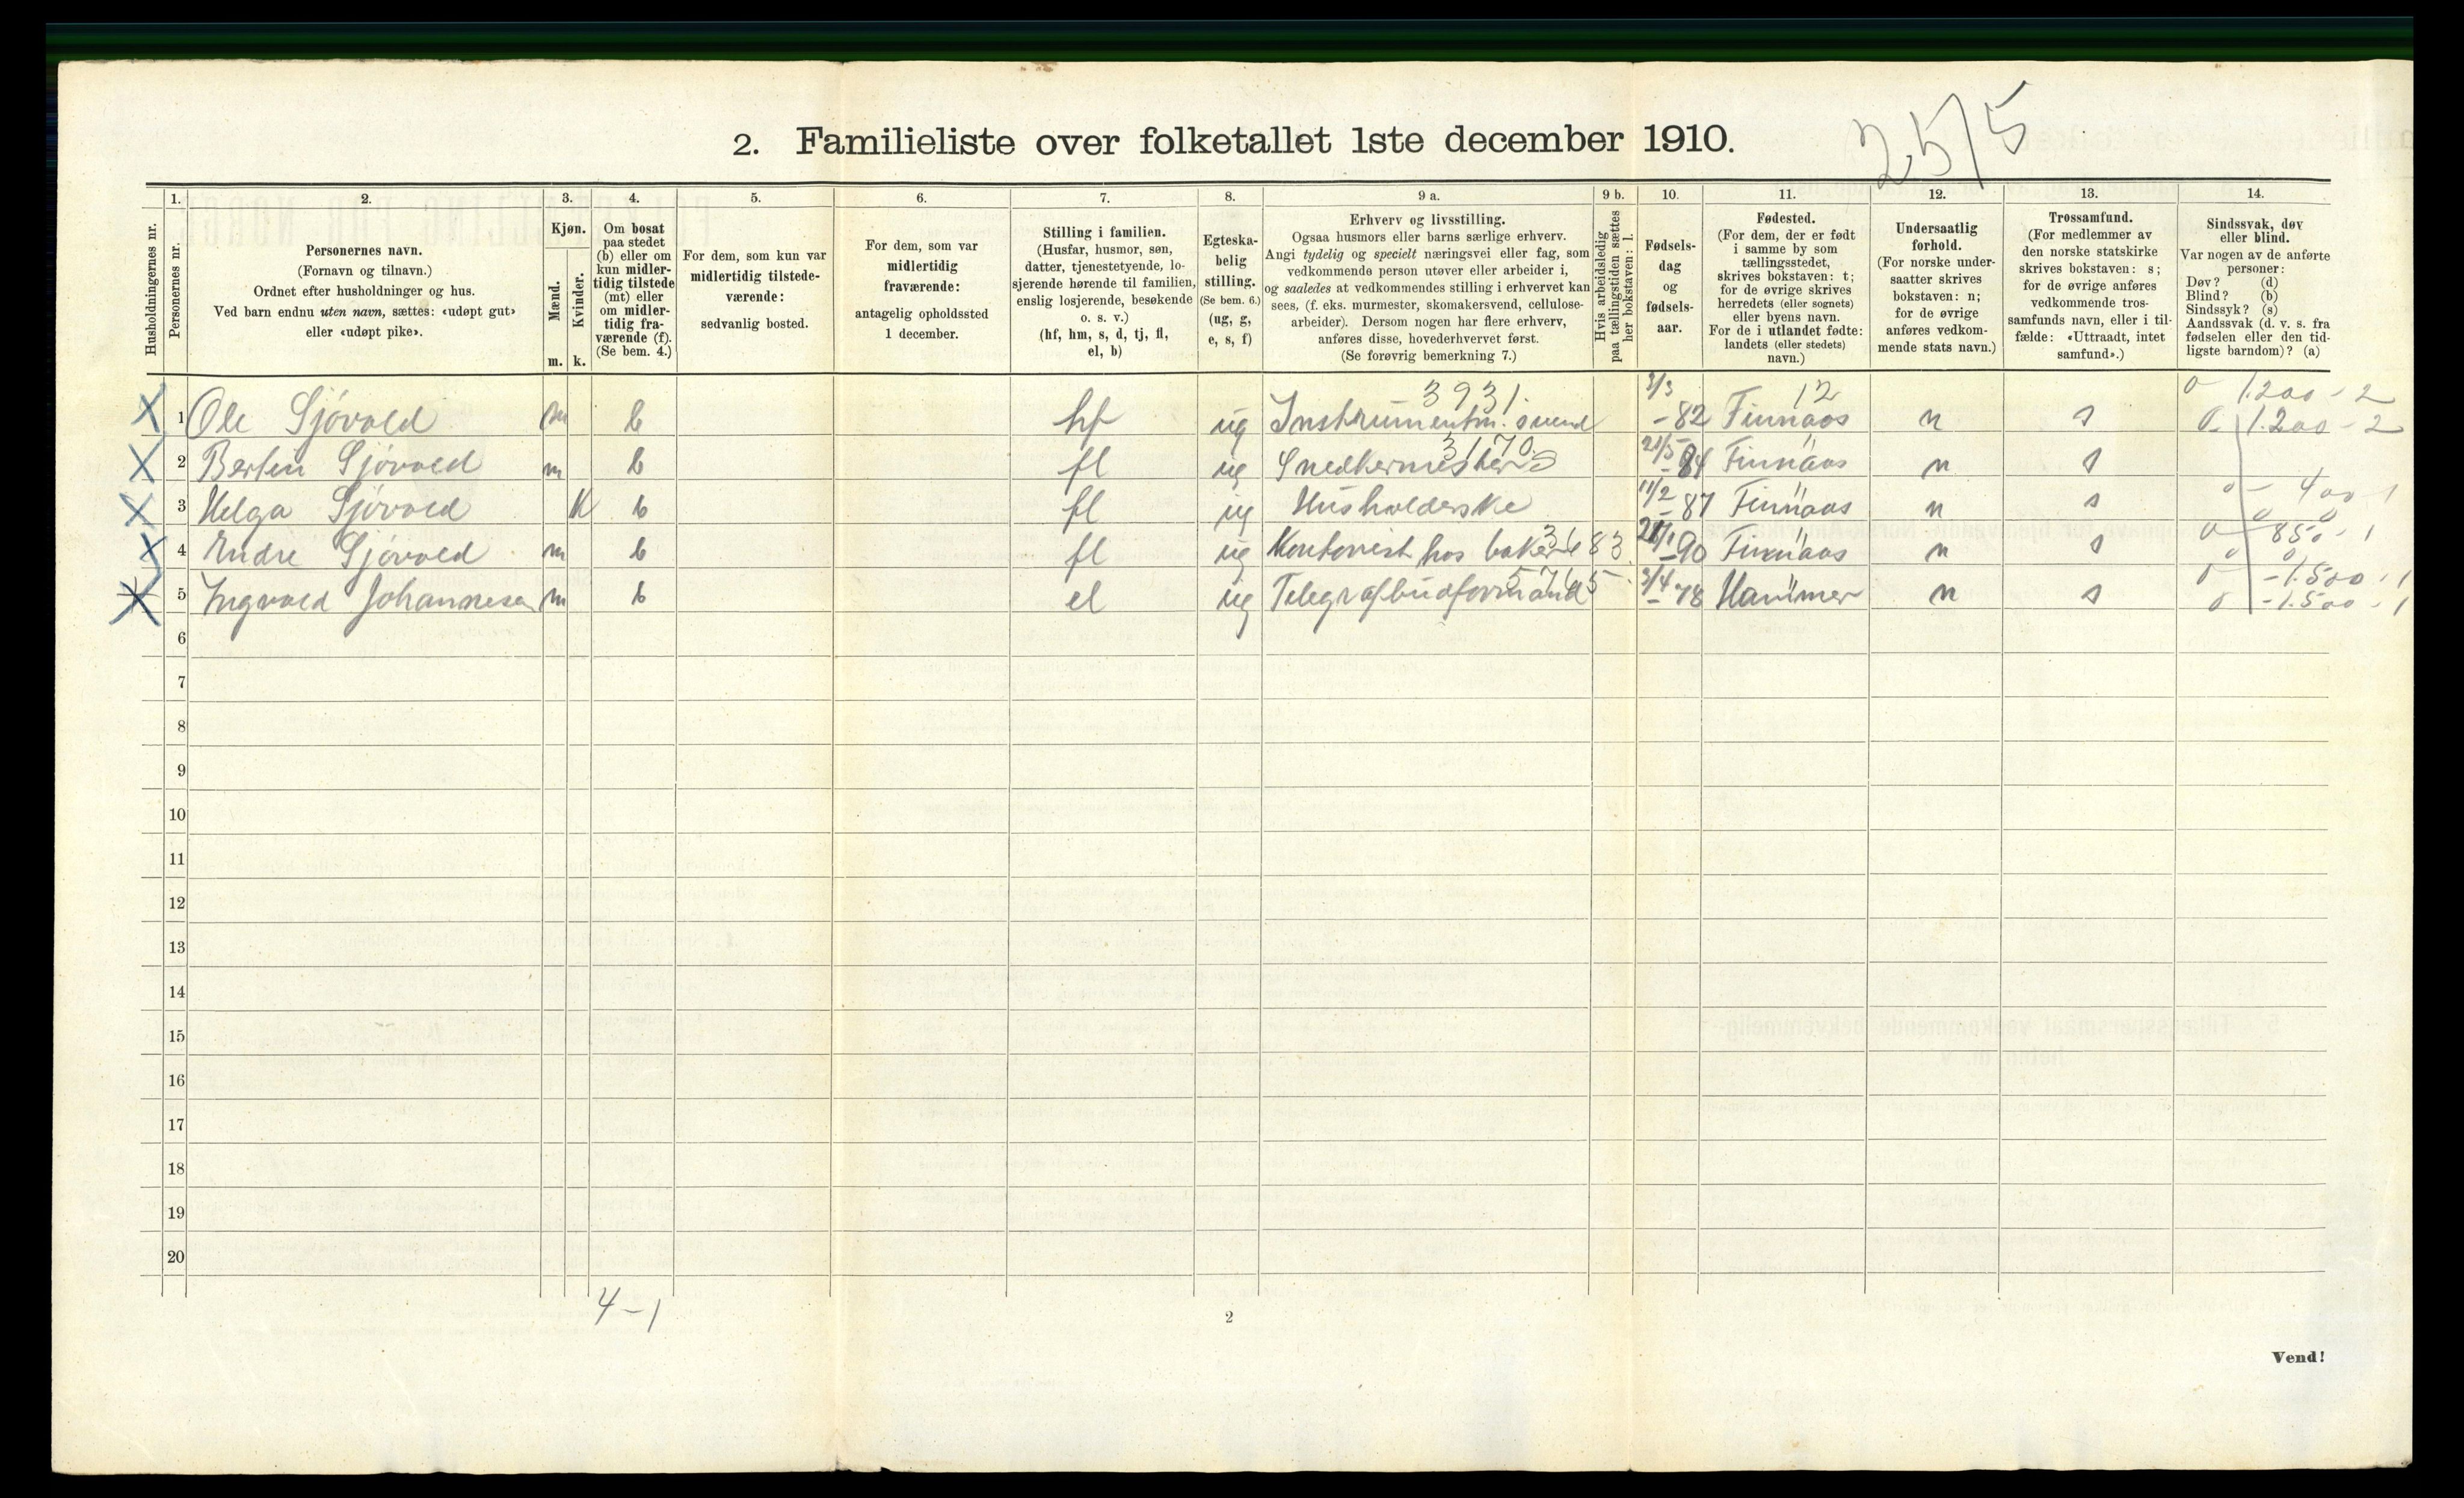 2. Familieliste over folketallet 1ste december 1910.
25/5
Husholdningernes nr.
1. Personernes nr.
2. Personernes navn.
(Fornavn og tilnavn.)
Ordnet efter husholdninger og hus.
Ved barn endnu uten navn, sættes: «udøpt gut»
eller «udøpt pike».
3. Kjøn.
Mænd. Kvinder.
m. k.
4. Om bosat
paa stedet
(b) eller om
kun midler-
tidig tilstede
(mt) eller
om midler-
tidig fra-
værende (f).
(Se bem. 4.)
5. For dem, som kun var
midlertidig tilstede-
værende:
sedvanlig bosted.
6. For dem, som var
midlertidig
fraværende:
antagelig opholdssted
1 december.
7. Stilling i familien.
(Husfar, husmor, søn,
datter, tjenestetyende, lo-
sjerende hørende til familien,
enslig losjerende, besøkende
o. s. v.)
(hf, hm, s, d, tj, fl,
el, b)
8. Egteska-
belig
stilling.
(Se bem. 6.)
(ug, g,
e, s, f)
9 a. Erhverv og livsstilling.
Ogsaa husmors eller barns særlige erhverv.
Angi tydelig og specielt næringsvei eller fag, som
vedkommende person utøver eller arbeider i,
og saaledes at vedkommendes stilling i erhvervet kan
sees, (f. eks. murmester, skomakersvend, cellulose-
arbeider). Dersom nogen har flere erhverv,
anføres disse, hovederhvervet først.
(Se forøvrig bemerkning 7.)
9 b. Hvis arbeidsledig
paa tællingstiden sættes
her bokstaven: l.
10. Fødsels-
dag
og
fødsels-
aar.
11. Fødested.
(For dem, der er født
i samme by som
tællingsstedet,
skrives bokstaven: t;
for de øvrige skrives
herredets (eller sognets)
eller byens navn.
For de i utlandet fødte:
landets (eller stedets)
navn.)
12. Undersaatlig
forhold.
(For norske under-
saatter skrives
bokstaven: n;
for de øvrige
anføres vedkom-
mende stats navn.)
13. Trossamfund.
(For medlemmer av
den norske statskirke
skrives bokstaven: s;
for de øvrige anføres
vedkommende tros-
samfunds navn, eller i til-
fælde: «Uttraadt, intet
samfund».)
14. Sindssvak, døv
eller blind.
Var nogen av de anførte
personer:
Døv? (d)
Blind? (b)
Sindssyk? (s)
Aandssvak (d. v. s. fra
fødselen eller den tid-
ligste barndom)? (a)
3931. 12 0 1.200 - 2
X 1 Ole Sjóvold m b hf ug Instrumentm. svend 3/3 -82 Finnaas n s 0 - 1.200 - 2
3170.
X 2 Bertin Sjóvold m b fl ug Snedkermester 21/5 -84 Finnaas n s
X 3 Helga Sjóvold K b fl ug Husholderske 11/2 -87 Finnaas n s 0 - 400 - 1
X 4 Endre Sjóvold m b fl ug Kontorist hos baker 3683 -90 Finnaas n s 0 850 - 1
X 5 Ingvald Johannesen m b el ug Telegrafbudformand 3/4 -78 Hammer n s 0 - 1.500 - 1
0 - 1.500 - 1
6
7
8
9
10
11
12
13
14
15
16
17
18
19
20
4 - 1
2
Vend!